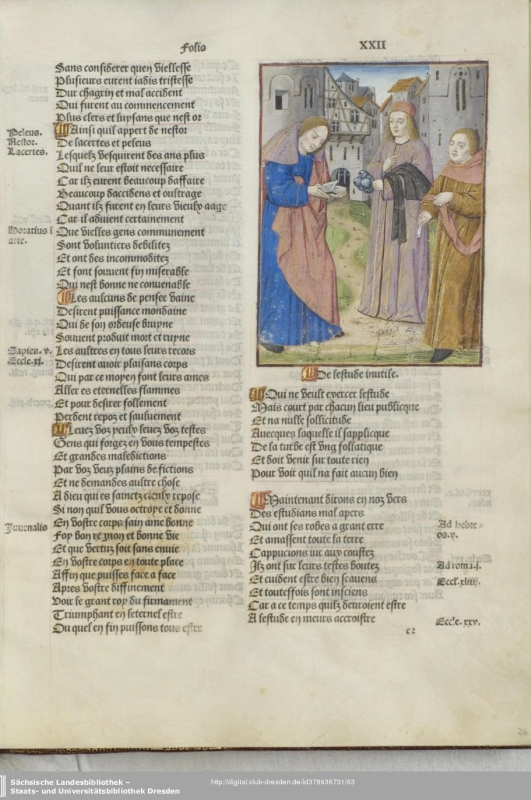 Folio
XXII
Sans considerer quen viellesse
Plusieurs eurent iadis tristesse
Dur chagrin et mal accident
Qui furent au commencement
Plus clers et luysans que nest or
Ainsi quil appert de nestor
Peleus.
Nestor.
Lacertes.
De lacertes et peleus
Lesquelz vesquirent des ans plus
Quil ne leur estoit necessaire
Car ilz eurent beaucoup daffaire
Beaucoup daccidens et oultrage
Quant ilz furent en leurs vieulx aage
Car il aduient certainement
Que vielles gens communement
Horatius i
arte.
Sont voluntiers debilitez
Et ont des incommoditez
Et sont souuent fin miserable
Qui nest bonne ne conuenable
Les aulcuns de pensee vaine
Desirent puissance mondaine
Qui de son odeuse bruyne
Souuent produit mort et ruyne
Sapien. v.
Eccle. xj.
Les aultres en tous leurs recors
Desirent auoir plaisans corps
Qui par ce moyen font leurs ames
Aller es eternelles flammes
Et pour desirer follement
Perdent repoz et sauluement
Leuez voz yeulx leuez voz testes
Gens qui forgez en vous tempestes
Et grandes maledictions
Par voz veuz plains de fictions
Et ne demandes aultre chose
A dieu qui es sainctz cieulx repose
Si non quil vous octroye et donne
Juuenalis
En vostre corps sain ame bonne
Foy bon renon et bonne vie
Et que vertuz soit sans enuie
En vostre corps en toute place
Affin que puisses face a face
Apres vostre diffinement
Voir le grant roy du firmament
Triumphant en leternel estre
Ou quel en fin puissons tous estre
De lestude inutile.
Qui ne veult exercer lestude
Mais court par chacun lieu publicque
Et na nulle sollicitude
Auecques laquelle il sapplicque
De la turbe est vng follatique
Et doit venir sur toute rien
Pour voir quil na fait aucun bien
Maintenant dirons en noz vers
Des estudians mal apers
Qui ont ses robes a grant erre
Ad hebre
os. v.
Et amassent toute la terre
Cappucions iuc aux coustez
Ilz ont sur leurs testes boutez
Ad roma. j.
Et cuident estre bien scauens
Et toutesfois sont insciens
Eccl. xliiij.
Car a ce temps quilz deuroient estre
A lestude en meurs accroistre
Eccle. xxv.
c 2
Sächsische Landesbibliothek –
Staats- und Universitätsbibliothek Dresden
http://digital.slub-dresden.de/id378636731/63